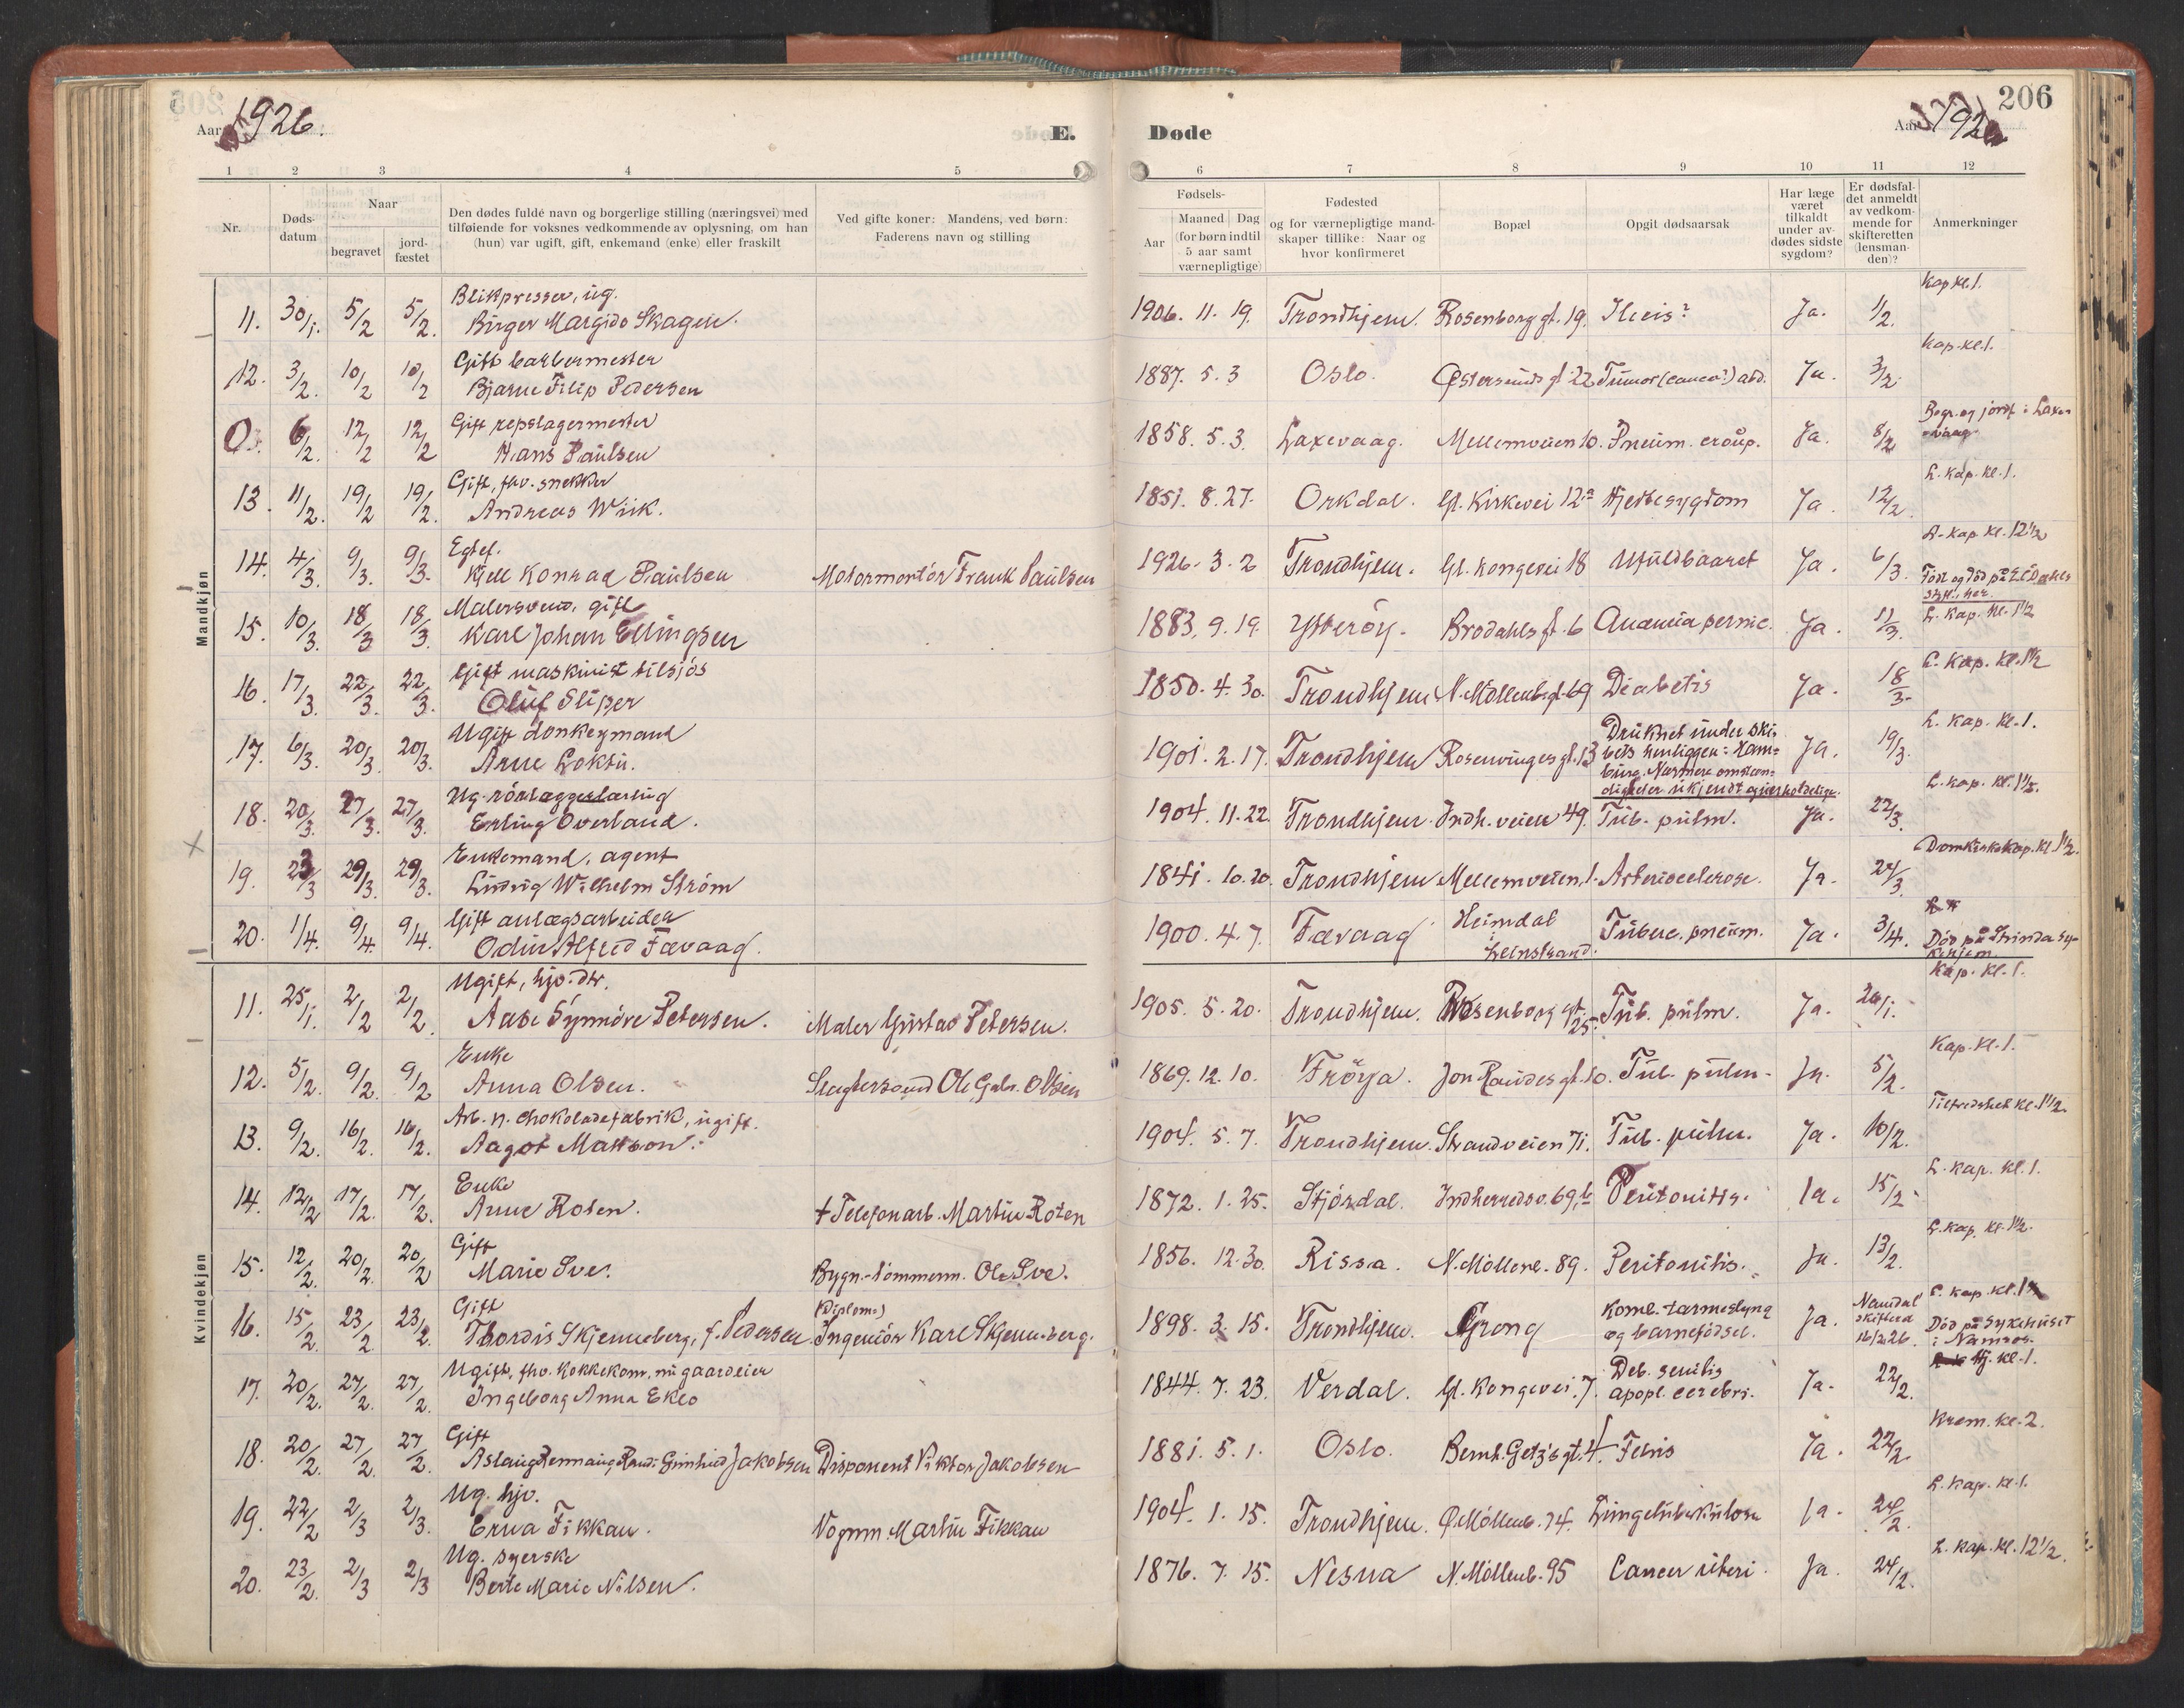 206
Aar 1926.
E.
Døde
Aar 1926
1 2 3 4 5 6 7 8 9 10 11 12
Nr.
Døds-
datum
Naar
begravet
jord-
fæstet
Den dødes fulde navn og borgerlige stilling (næringsvei) med
tilføiende for voksnes vedkommende av oplysning, om han
(hun) var ugift, gift, enkemand (enke) eller fraskilt
Ved gifte koner: Mandens, ved børn:
Faderens navn og stilling
Fødsels-
Aar
Maaned Dag
(for børn indtil
5 aar samt
værnepligtige)
Fødested
og for værnepligtige mand-
skaper tillike: Naar og
hvor konfirmeret
Bopæl
Opgit dødsaarsak
Har læge
været
tilkaldt
under av-
dødes sidste
sygdom?
Er dødsfal-
det anmeldt
av vedkom-
mende for
skifteretten
(lensman-
den)?
Anmerkninger
Mandkjøn
Blikpresser, ug. Kap kl. 1.
11. 30/1. 5/2 5/2. Birger Margido Skagen. 1906. 11. 19. Trondhjem. Rosenborg gt. 19. Ileis? Ja. 1/2.
Gift barbermester Kap. kl. 1.
12. 3/2. 10/2 10/2 Bjarne Filip Pedersen 1887. 5. 3 Oslo. Østersunds gt. 22 Tumor (cancer?) abd. Ja. 3/2.
Gift repslagermester Begr. og jordf. i Laxe-
vaag
0. 6/2. 12/2 12/2 Hans Paulsen 1858. 5. 3. Laxevaag. Mellemveien 10. Pneum. croup. Ja. 8/2
Gift, fhv. snekker L. kap. kl. 1.
13. 11/2. 19/2 19/2. Andreas Wiik. 1851. 8. 27. Orkdal. Gl. Kirkevei 12a Hjertesygdom Ja. 12/2
Egtef. L. kap. kl. 12 1/2
14. 4/3. 9/3. 9/3. Kjell Konrad Paulsen Motormontör Frank Paulsen 1926. 3. 2 Trondhjem. Gl. Kongevei 18 Ufuldbaaret Ja. 6/3. Född og död på E.C.Dahls
stift. her.
Malersvend, gift L. Kap. kl. 1 1/2
15. 10/3. 18/3 18/3. Karl Johan Ellingsen 1883. 9. 19. Ytterøy. Brodahls gt. 6 Anæmia pernic. Ja. 11/3.
Gift maskinist tilsjös L. Kap. kl. 1 1/2
16. 17/3. 22/3. 22/3. Oluf Slipper 1850. 4. 30. Trondhjem N. Möllenb. gt. 69 Diabetis Ja. 18/3.
Ugift donkeymand L. Kap. kl. 1.
17. 6/3. 20/3. 20/3. Arne Loktu. 1901. 2. 17. Trondhjem Rosenvinges gt. 13 Druknet under ski-
bets henliggen i Ham-
burg. Nærmere omstæn-
digheter ukjendt og uerholdelige. Ja. 19/3.
Ug. rörlæggerlærling L. kap. kl. 1 1/2.
18. 20/3. 27/3. 27/3. Erling Overland. 1904. 11. 22. Trondhjem. Indh. veien 49. Tub. pulm. Ja. 22/3.
Enkemand, agent Domkirkekap. kl. 1 1/2.
19. 23/3 29/3. 29/3. Ludvig Wilhelm Ström 1841. 10. 20. Trondhjem Mellemveien 1. Arteriosclerose. Ja. 24/3.
Gift anlægsarbeider
20. 1/4. 9/4. 9/4. Odin Alfred Fævaag. 1900. 4. 7. Fævaag Heimdal
Leinstrand. Tuberc. pneum. Ja. 3/4. Död på Strinda sy-
kehjem.
Kvindekjøn
Ugift, hjv. dtr. Kap. kl. 1.
11. 25/1. 2/2 2/2. Aase Synnöve Petersen. Maler Gustav Petersen. 1905. 5. 20. Trondhjem. Rosenborg gt. 25. Tub. pulm. Ja. 26/1.
Enke Kap. kl. 1.
12. 5/2. 9/2. 9/2 Anna Olsen. Slagtersvend Ole Gabr. Olsen 1869. 12. 10. Fröya. Jon Raudes gt. 10. Tub. pulm. Ja. 5/2.
Arb. n. Chokoladefabrik, ugift. Tilfredshet kl. 1 1/2.
13. 9/2. 16/2. 16/2. Aagot Mattson. 1904. 5. 7. Trondhjem. Strandveien 71. Tub. pulm. Ja. 10/2.
Enke L. kap. kl. 1.
14. 12/2 17/2. 17/2. Anne Roten. † Telefonarb. Martin Roten 1872. 1. 25. Stjördal. Indherredsv. 69, b Peritonitis. Ja. 15/2
Gift L. kap. kl. 1 1/2.
15. 12/2. 20/2. 20/2 Marie Sve. Bygn.-tömmerm. Ole Sve. 1856. 12. 30. Rissa. N. Möllenb. 89. Peritonitis. Ja. 13/2.
Gift (Diplom:) L. kap. kl. 1 1/2
16. 15/2. 23/2 23/2. Thordis Skjenneberg, f. Pedersen. Ingeniör Karl Skjenneberg. 1898. 3. 15. Trondhjem. Grong Komb. tarmeslyng
og barnefödsel. Ja. Namdal
skifterd
16/2.26. Död på Sykehuset
i Namsos.
Ugift, fhv. kokkekone, nu gaardeier Hj. kl. 1.
17. 20/2. 27/2. 27/2. Ingeborg Anna Eklo 1844. 7. 23. Verdal. Gl. Kongevei. 7. Deb. senilis
apopl. cerebri. Ja. 22/2.
Gift Krem. kl. 2.
18. 20/2. 27/2. 27/2. Aslaug Jakobsen Disponent Viktor Jakobsen 1881. 5. 1. Oslo. Bernh. Getz's gt. 4. Febris Ja. 22/2
Ug. hjv. L. kap. kl. 1.
19. 22/2 2/3 2/3. Erna Fikkan. Vognm. Martin Fikkan 1904. 1. 15. Trondhjem. Ø. Möllenb. 74. Lungetuberkulose Ja. 24/2.
Ug. syerske L. kap. kl. 12 1/2.
20. 23/2. 2/3 2/3 Berte Marie Nilsen. 1876. 7. 15. Nesna N. Möllenb. 95 Cancer uteri. Ja. 24/2.